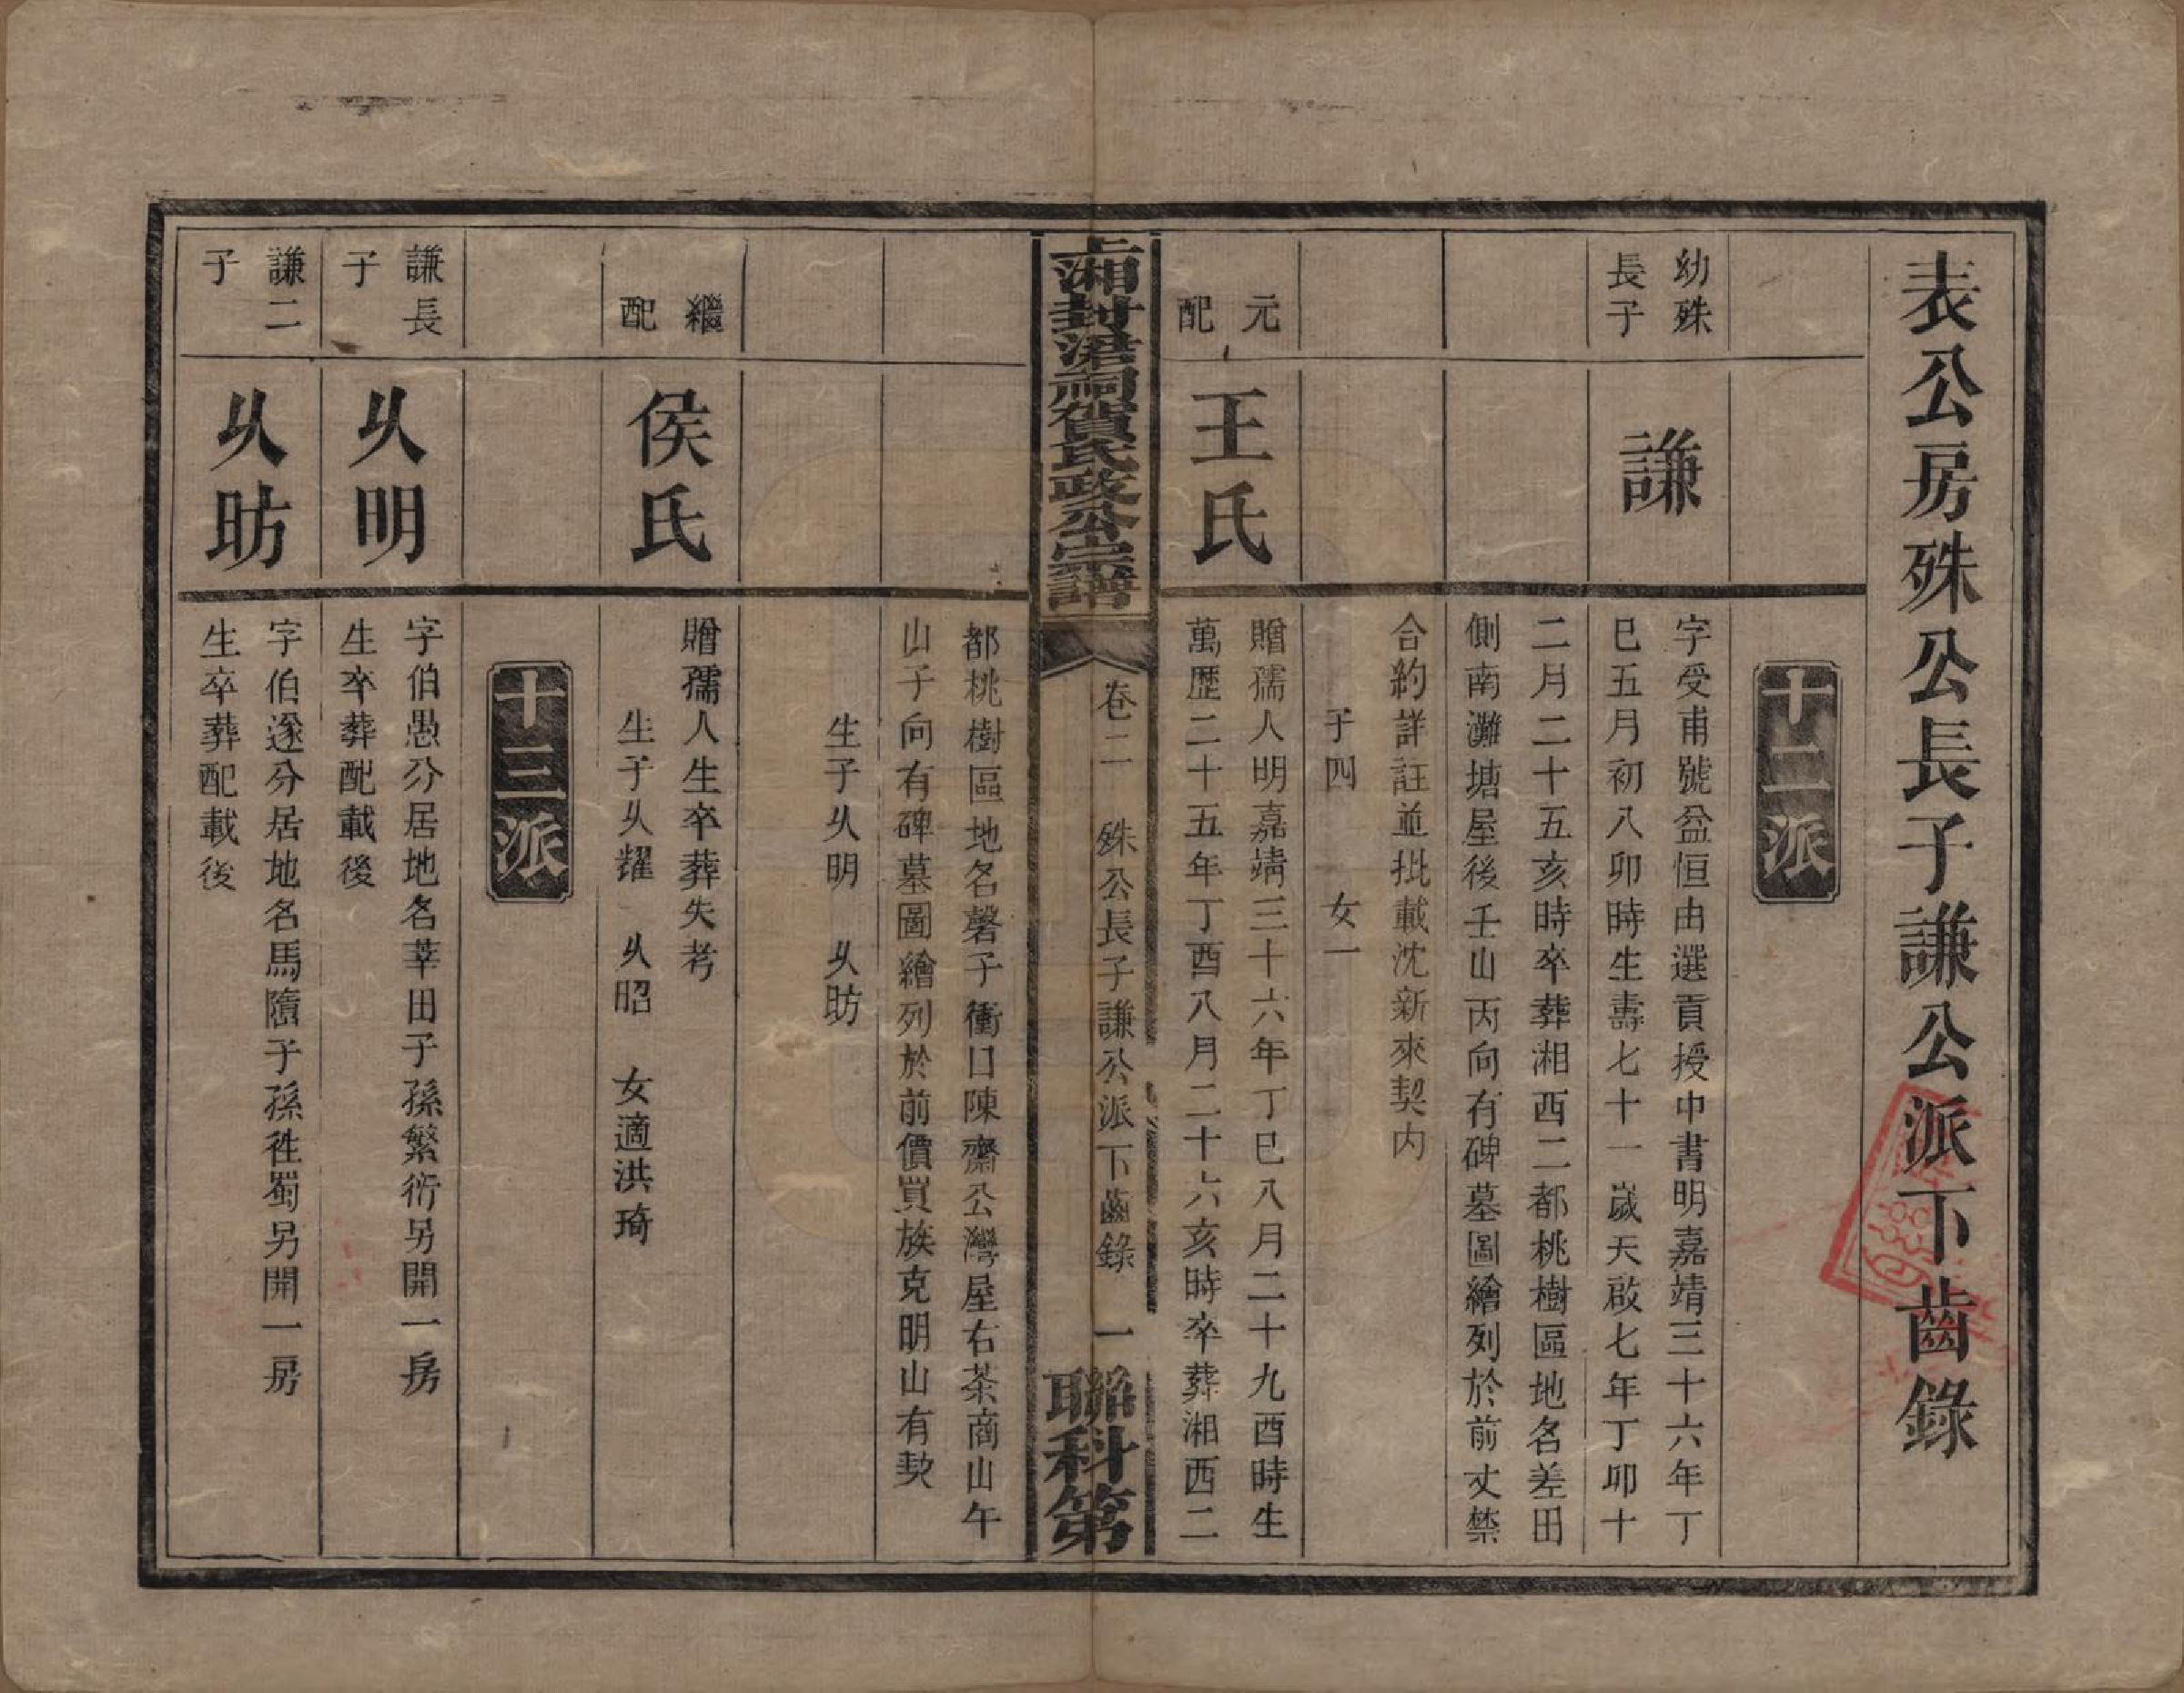 表公房殊公長子謙公派下齒錄
十二派
幼殊
長子
謙
字受甫號益恒由選貢授中書明嘉靖三十六年丁
巳五月初八卯時生壽七十一歲天啟七年丁卯十
二月二十五亥時卒葬湘西二都桃樹區地名差田
側南灘塘屋後壬山丙向有碑墓圖繪列於前丈禁
合約詳註並批載沈新來契内
子四 女一
元
配
王氏
贈孺人明嘉靖三十六年丁巳八月二十九酉時生
萬歷二十五年丁酉八月二十六亥時卒葬湘西二
上湘封涒祠賀氏政公宗譜
卷二 殊公長子謙公派下齒錄 一
聯科第
都桃樹區地名磬子衝口陳齋公灣屋右茶商山午
山子向有碑墓圖繪列於前價買族克明山有契
生子乆明 乆昉
繼
配
侯氏
贈孺人生卒葬失考
生子乆耀 乆昭 女適洪琦
十三派
謙長
子
乆明
字伯愚分居地名莘田子孫繁衍另開一房
生卒葬配載後
謙二
子
乆昉
字伯遂分居地名馬隨子孫徃蜀另開一房
生卒葬配載後